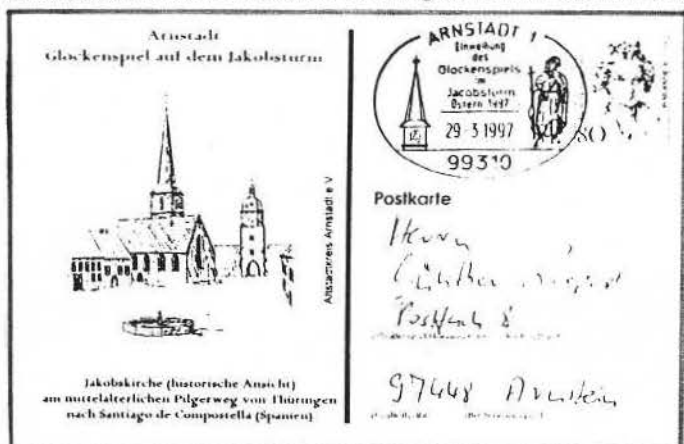 Arnstadt
Glockenspiel auf dem Jakobsturm
Arnstadtkreis Arnstadt e.V.
Jakobskirche (historische Ansicht)
am mittelalterlichen Pilgerweg von Thüringen
nach Santiago de Compostella (Spanien)
ARNSTADT 1
Einweihung
des
Glockenspiels
im
Jacobsturm
Ostern 1997
29-3 1997
99310
Postkarte
Herrn
Günther
Postfach 8
97448 Arnstein